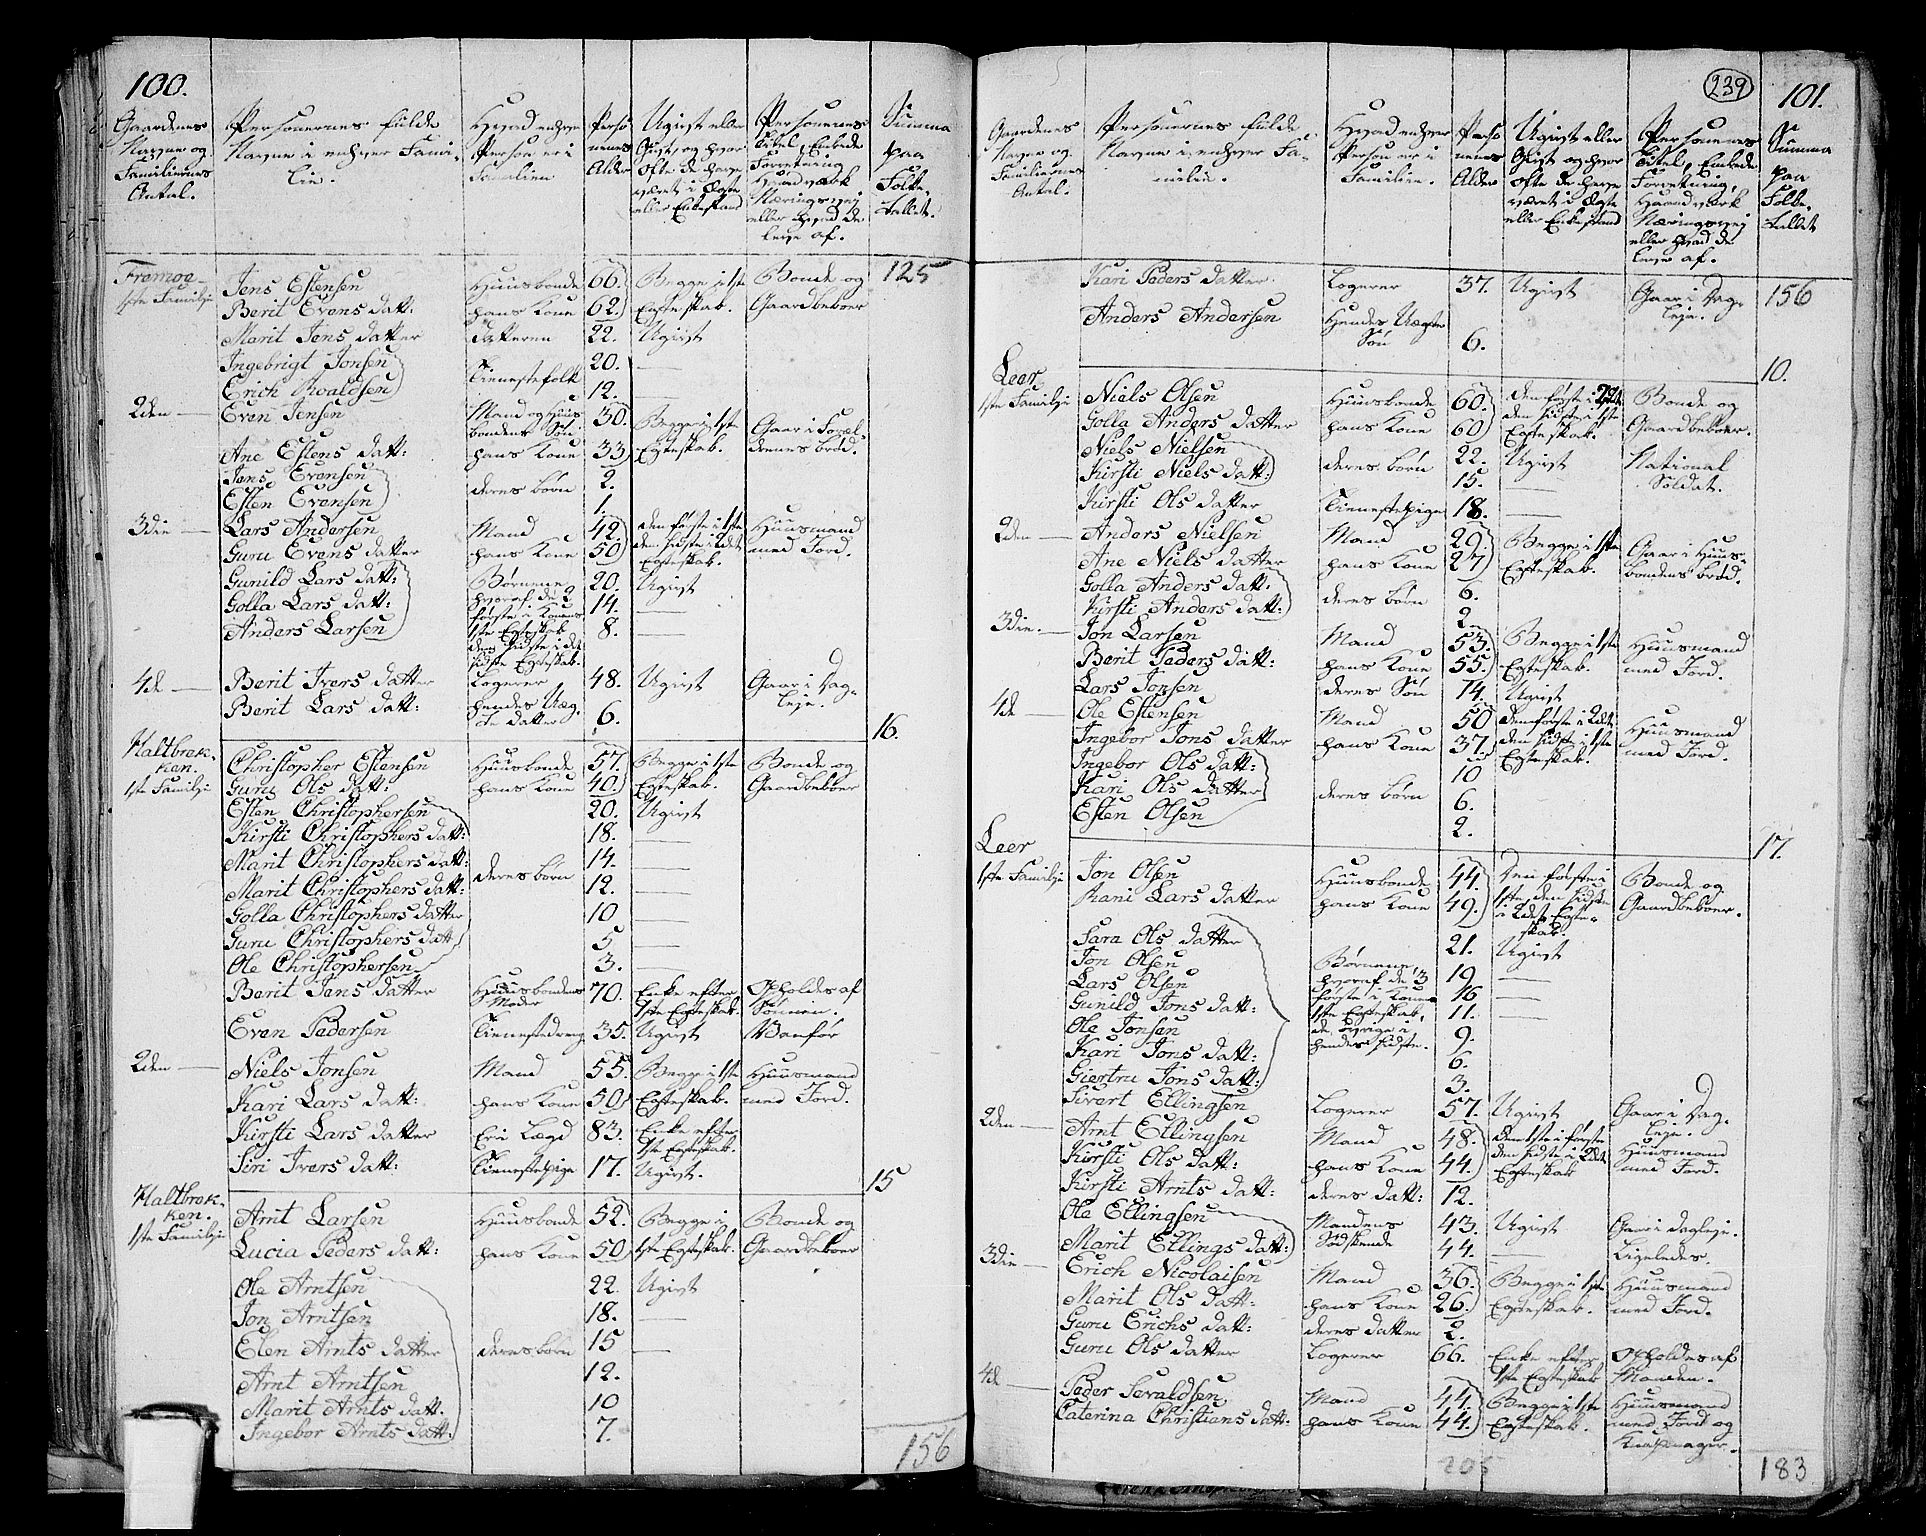 100.
Gaardenes Navne og Familiernes Antal.
Personernes fulde Navne i enhver Familie.
Hvad enhver Person er i Familien
Personernes Alder
Ugivt eller Gift, og hvor ofte de have været i Ægte eller Enkestand
Personernes Titel, Embede Forretning Haandværk Næringsvej eller hvad de leve af.
Summa paa Folke-Tallet.
Fremoe 125
1ste Familje Jens Estensen Huusbonde 66. Begge i 1ste Bonde og
Berit Evens datt: hans Kone 62. Egteskab. Gaardbeboer
Marit Jens datter datteren 22. Ugivt
Ingebrigt Jonsen Tienestefolk 20. —
Erich Roaldsen 12.
2den — Even Jensen Mand og Huusbondens Søn 30. Begge i 1ste Gaar i Foræl-
Ane Estens datt: hans Kone 33 Egteskab. drenes brød.
Jens Evensen deres børn 2.
Esten Evensen 1.
3die — Lars Andersen Mand 42. den første i 1ste Huusmand
Guru Evens datter hans Kone 50 den sidste i 2det Egteskab. med Jord.
Gunild Lars datt: Børnene 20. Ugivt
Golla Lars datt: hvoraf de 2 første i Konens 14. —
Anders Larsen 1ste Egteskab den sidste i det sidste Egteskab. 8. —
4de — Berit Ivers datter Logerer 48. Ugivt Gaar i Dag-
Berit Lars datt: hendes Uægte datter 6. leje.
16.
Kaltbrekken.
1ste Familje Christopher Estensen Huusbonde 57. Begge i 1ste Bonde og
Guru Ols datt: hans Kone 40. Egteskab. Gaardbeboer
Esten Christophersen 20. Ugivt
Kirsti Christophers datt: 18. —
Marit Christophers datt: deres børn 14. —
Marit Christophers datt: 12. —
Golla Christophers datter 10 —
Guru Christophers datt 5 —
Ole Christophersen 3. —
Berit Jens datter Huusbondens Moder 70. Enke efter 1ste Egteskab Opholdes af Sønnen.
Even Pedersen Tienestedreng 35. Ugivt Vanfør
2den — Niels Jonsen Mand 55. Begge i 1ste Huusmand
Kari Lars datt: hans Kone 50 Egteskab. med Jord.
Kirsti Lars datter Er i Lægd 83. Enke efter 1ste Egteskab.
Siri Ivers datt: Tienestepige 17. Ugivt.
15
Kaltbrekken.
1ste Familje Arnt Larsen Huusbonde 52. Begge i Bonde og
Lucia Peders datt: hans Kone 50 1ste Egteskab. Gaardbeboer
Ole Arntsen 22. Ugivt
Jon Arntsen 18. —
Elen Arnts datter deres børn 15 —
Arnt Arntsen 12.
Marit Arnts datt. 10
Ingebor Arnts datt: 7.
156
239
101.
Gaardenes Navne og Familiernes Antal.
Personernes fulde Navne i enhver Familie.
Hvad enhver Person er i Familien.
Personernes Alder
Ugivt eller Gift og hvor ofte de have været i Ægte eller Enkestand
Personernes Titel, Embede Forretning, Haandværk Næringsvej eller hvad de leve af.
Summa paa Folke-Tallet
Kari Peders datter Logerer 37. Ugivt Gaar i Dag- 156
Anders Andersen Hendes Uægte Søn 6. leje.
10.
Leer
1ste Familje Niels Olsen Huusbonde 60. den første i 2det Bonde og
Golla Anders datter hans Kone 60 den sidste i 1ste Egteskab. Gaardbeboer.
Niels Nielsen deres børn 22. Ugivt National Soldat.
Kirsti Niels datt: 15. —
Kirsti Ols datter Tienestepige 18. —
2den — Anders Nielsen Mand 29 Begge i 1ste Gaar i Huus-
Ane Niels datter hans Kone 27 Egteskab. bondens brød.
Golla Anders datt. deres børn 6.
Kirsti Anders datt: 2.
3die. — Jon Larsen Mand 53. Begge i 1ste Huusmand
Berit Peders datt: hans Kone 55. Egteskab. med Jord.
Lars Jonsen deres Søn 14. Ugivt
4de — Ole Estensen Mand 50 den første i 2det, Huusmand
Ingebor Jons datter hans Kone 37. den sidste i 1ste Egteskab. med Jord.
Ingebor Ols datt: 10
Kari Ols datter deres børn 6.
Esten Olsen 2.
17.
Leer
1ste Familje Jon Olsen Huusbonde 44. Den første i Bonde og
Kani Lars datter hans Kone 49. 1ste, den sidste i 2det Egteskab. Gaardbeboer.
Sara Ols datter 21. Ugivt
Jon Olsen Børnene 19 —
Lars Olsen hvoraf de 3 første i Konens 16 —
Gunild Jons datt: 1ste Egteskab, 11. —
Ole Jonsen de øvrige i hendes sidste. 9.
Kari Jons datt: 6.
Giertru Jons datt: 3.
Sivert Ellingsen Logerer 57. Ugivt Gaar i Dagleje.
2den — Arnt Ellingsen Mand 48. Den 1ste i første Huusmand
Kirsti Ols datt: hans Kone 44. den sidste i 2det Egteskab med Jord.
Kirsti Arnts datt: deres datt: 12.
Ole Ellingsen Mandens Sødskende 43. Ugivt Gaar i dagleje.
Marit Ellings datt: 44. — Ligeledes.
3die — Erich Nicolaisen Mand 36. Begge i 1ste Huusmand
Marit Ols datt: hans Kone 26. Egteskab. med Jord.
Guru Erichs datt: deres datter 2.
Guru Ols datter Logerer 66. Enke efter 1ste Egteskab Opholdes af Manden.
4de — Peder Sevaldsen Mand 44. Begge i 1ste Huusmand
Caterina Christians datt: hans Kone 44. Egteskab. med Jord og
205 183